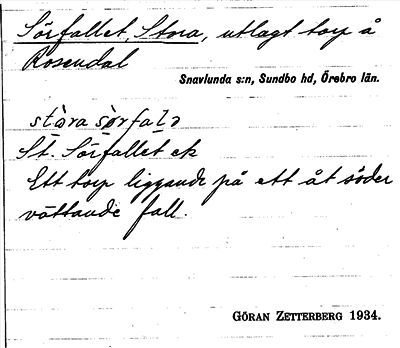 Sörfallet, Stora, utlagt torp å
Rosendal
Snavlunda s:n, Sundbo hd, Örebro län.
St. Sörfallet ek
Ett torp liggande på ett åt söder
vättande fall.
GÖRAN ZETTERBERG 1934.